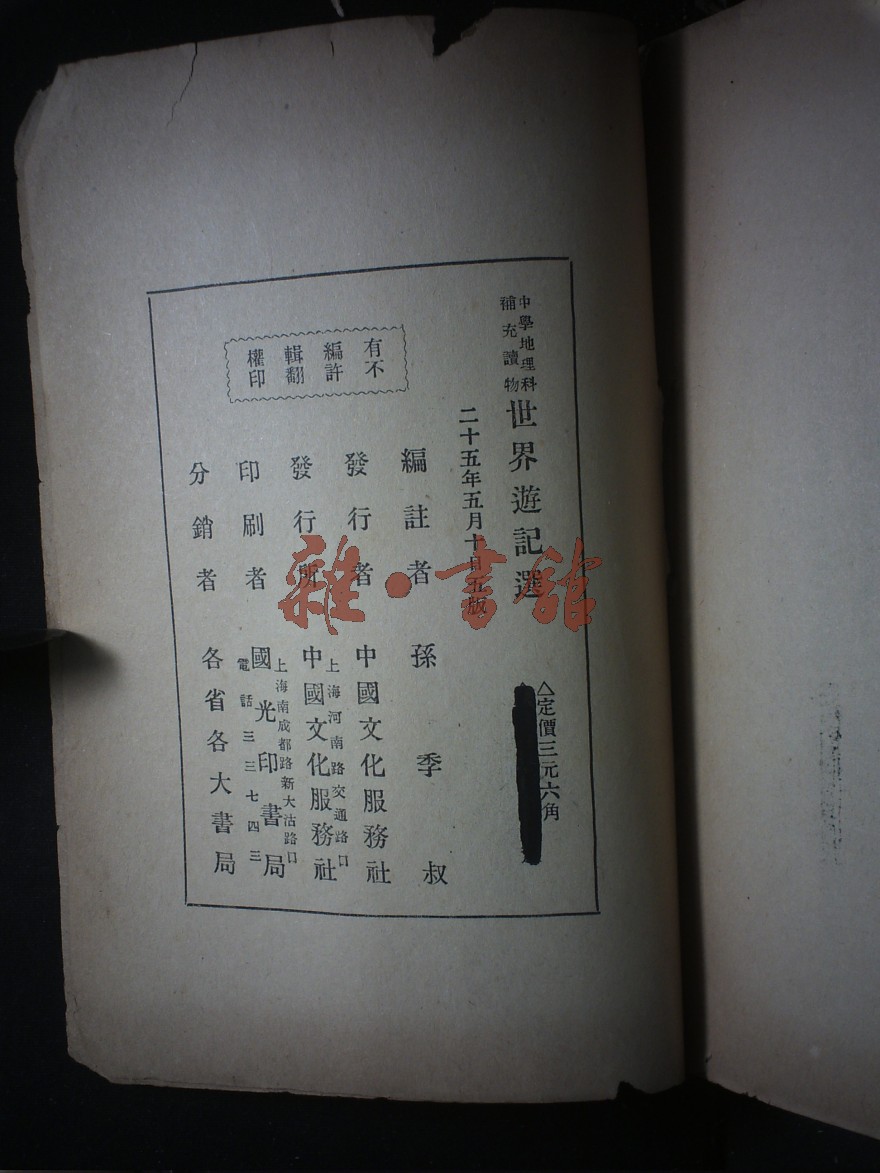 中學地理科
補充讀物
世界遊記選
△定價三元六角
二十五年五月十日五版
編註者 孫季叔
發行者 中國文化服務社
上海河南路交通路口
發行所 中國文化服務社
上海南成都路新大沽路口
印刷者 國光印書局
電話三三七四三
分銷者 各省各大書局
有不
編許
輯翻
權印
雜·書館